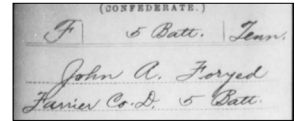 (CONFEDERATE.)
F | 5 Batt. | Tenn.
John A. Foryed
Farrier Co. D. 5 Batt.